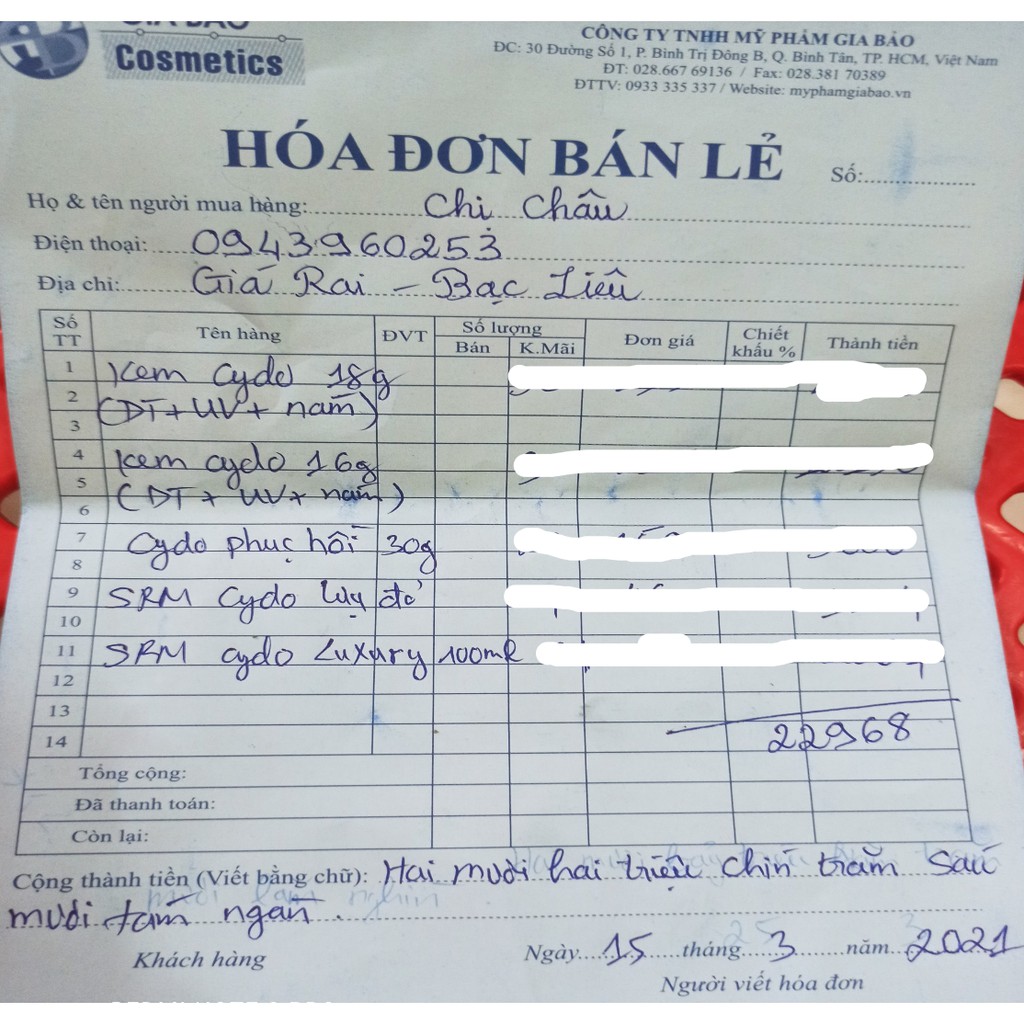 GIA BẢO
Cosmetics
CÔNG TY TNHH MỸ PHẨM GIA BẢO
ĐC: 30 Đường Số 1, P. Bình Trị Đông B, Q. Bình Tân, TP. HCM, Việt Nam
ĐT: 028.667 69136 / Fax: 028.381 70389
ĐTTV: 0933 335 337 / Website: myphamgiabao.vn
HÓA ĐƠN BÁN LẺ
Số:
Họ & tên người mua hàng: Chị Châu
Điện thoại: 0943960253
Địa chỉ: Giá Rai - Bạc Liêu
Số TT Tên hàng ĐVT Số lượng Đơn giá Chiết khấu % Thành tiền
Bán K.Mãi
1 Kem Cydo 18g
2 (DT + UV + nám)
3
4 Kem cydo 16g
5 (DT + UV + nám)
6
7 Cydo phục hồi 30g
8
9 SRM Cydo lựu đỏ
10
11 SRM cydo Luxury 100ml
12
13
14 22968
Tổng cộng:
Đã thanh toán:
Còn lại:
Cộng thành tiền (Viết bằng chữ): Hai mươi hai triệu chín trăm sáu
mươi tám ngàn.
Ngày 15 tháng 3 năm 2021
Khách hàng
Người viết hóa đơn